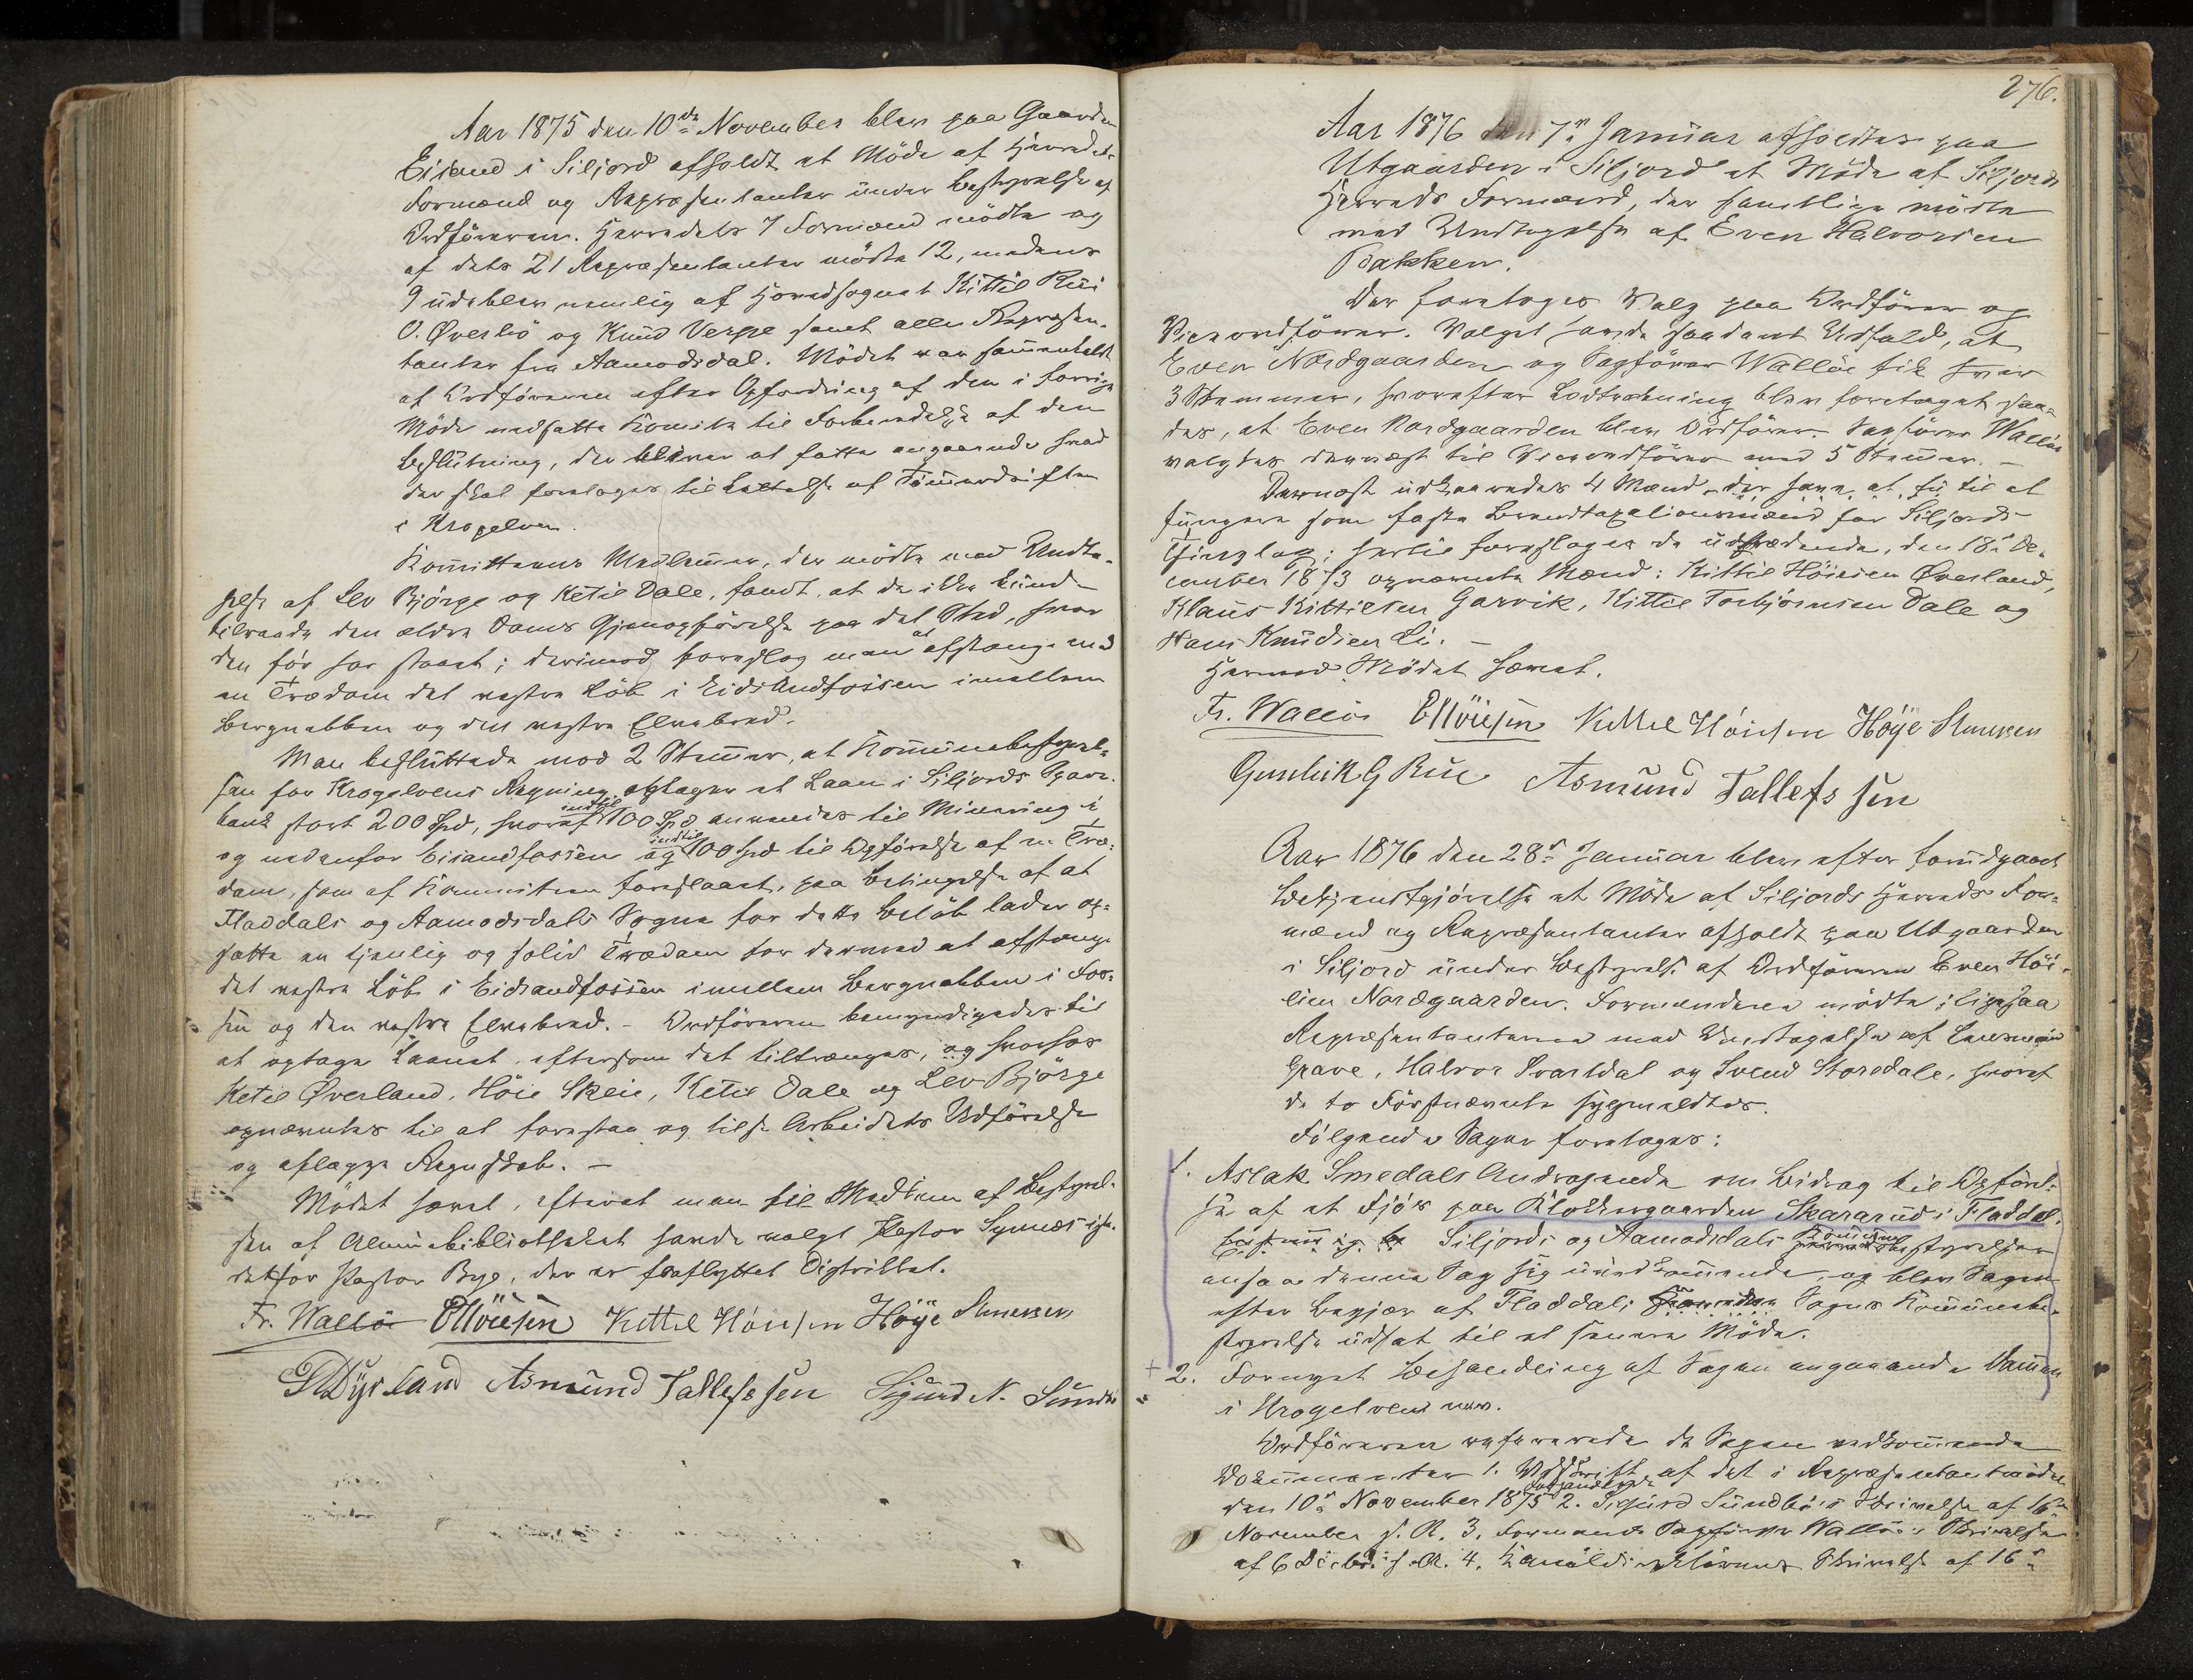 Aar 1875 den 10de November blev paa Gaarden
Eisand i Siljord afholdt et Möde af Herredets
Formænd og Repræsentanter under Bestyrelse af
Ordföreren. Herredets 7 Formænd mödte og
af dets 21 Repræsentanter mödte 12, medens
9 udeblev nemlig af Hovedsognet Kittil Rui
O. Øverbö og Knud Verpe samt alle Repræsen-
tanter fra Aamodsdal. Mödet var sammenkaldt
af Ordföreren efter Opfordring af den i forrige
Möde nedsatte Komite til Forberedelse af den
Beslutning, der bliver at fatte angaaende hvad
der skal foretages til Lettelse af Tömmerdriften
i Kropelven.
Komitteens Medlemmer, der mödte med Undta-
gelse af Lev Bjørge og Ketil Dale, fandt, at de ikke kunde
tilraade den ældre Dams Gjenopförelse paa det Sted, hvor
den för har staaet; derimod foreslog man at afstænge med
en Trædam det vestre Löb i Eidsandfossen imellem
Bergnabben og den vestre Elvebred.
Man besluttede mod 2 Stemmer, at Kommunebestyrel-
sen for Kropelvens Regning optager et Laan i Siljords Spare-
bank stort 200 Spd, hvoraf indtil 100 Spd anvendes til Minering i
og nedenfor Eisandfossen og indtil 100 Spd til Opförelse af en Træ-
dam, som af Kommiteen foreslaaet, paa Betingelse af at
Fladdals og Aamodsdals Sogne for dette Belöb lader op-
sætte en tjenlig og solid Trædam for dermed at afstænge
det vestre Löb i Eidsandfossen imellem Bergnabben i Fos-
sen og den vestre Elvebred. - Ordföreren bemyndigedes til
at optage Laanet eftersom det tiltrænges, og hvorhos
Ketil Øverland, Höie Skeie, Ketil Dale og Lev Bjørge
opnævntes til at forestaa og tilse Arbeidets Udförelse
og aflægge Regnskab. -
Mödet hævet, efterat man til Medlem af Bestyrel-
sen af Almuebibliotheket havde valgt Pastor Synnes iste-
detfor Pastor Bye, der er fraflyttet Distriktet.
Fr. Wallöe EHöiesen Kettel Höiesen Höÿe
Asmund Tallefssen Sigurd N. Sundbö
276.
Aar 1876 den 7de Januar afholdtes paa
Utgaarden i Siljord et Möde af Siljords
Herreds Formænd, der samtlige mödte
med Undtagelse af Even Halvorsen
Bakken.
Der foretoges Valg paa Ordförer og
Viceordförer. Valget havde saadant Udfald, at
Even Nordgaarden og Sagförer Wallöe fik hver
3 Stemmer, hvorefter Lodtrækning blev foretaget saa-
des, at Even Nordgaarden blev Ordförer. Sagförer Wallöe
valgtes dernæst til Viceordförer med 5 Stemmer. -
Dernæst udkaaredes 4 Mænd, der have at til at
fungere som faste Brandtaxationsmænd for Siljords
Thinglag; hertil foresloges de udtrædende, den 18de De-
cember 1873 opnævnte Mænd: Kittil Höiesen Øverland,
Klaus Kittilsen Garvik, Kittil Torbjörnsen Dale og
Hans Knudsen Li. -
Hermed Mödet hævet.
Fr. Wallöe EHöiesen Kettel Höiesen Höÿe
Gunleik G Rue Asmund Tallefssen
Aar 1876 den 28de Januar blev efter forudgaaet
Bekjendtgjörelse et Möde af Siljords Herreds For-
mænd og Repræsentanter afholdt paa Utgaarden
i Siljord under Bestyrelse af Ordföreren Even Höi-
esen Nordgaarden. Formændene mödte; ligesaa
Repræsentanterne med Undtagelse af Lensmand
Grave, Halvor Svartdal og Svend Storedale, hvoraf
de to Förstnævnte sygmeldtes.
Fölgende Sager foretoges:
1. Aslak Smedals Andragende om Bidrag til Opförel-
se af et Fjös paa Klokkergaarden Skararud i Fladdal.
Siljords og Aamodsdals Kommunebestyrelser
ansaa denne Sag sig uvedkommende, og blev Sagen
efter Begjær af Fladdals Sogns Kommunebe-
styrelse udsat til et senere Möde.
+ 2. Fornyet Behandling af Sagen angaaende Dammen
i Kropelven mv.
Ordföreren refererede de Sagen vedkommende
Dokumenter 1. Udskrift af det i Repræsentantmödet
den 10de November 1875 2. Sigurd Sundbö's Skrivelse af 16de
November s. A. 3. Formand Sagförer Wallöe's Skrivelse
af 6 Decbr. s. A. 4. Skrivelse af 16de